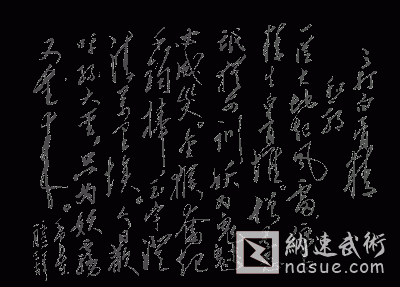 三打白骨精
一从大地起风雷便有
精生白骨堆。僧是愚
氓犹可训妖为鬼蜮
必成災。金猴奋起
千钧棒玉宇澄
清万里埃今日欢
呼孙大圣只为妖雾
又重来。
納速武術
nasue.com